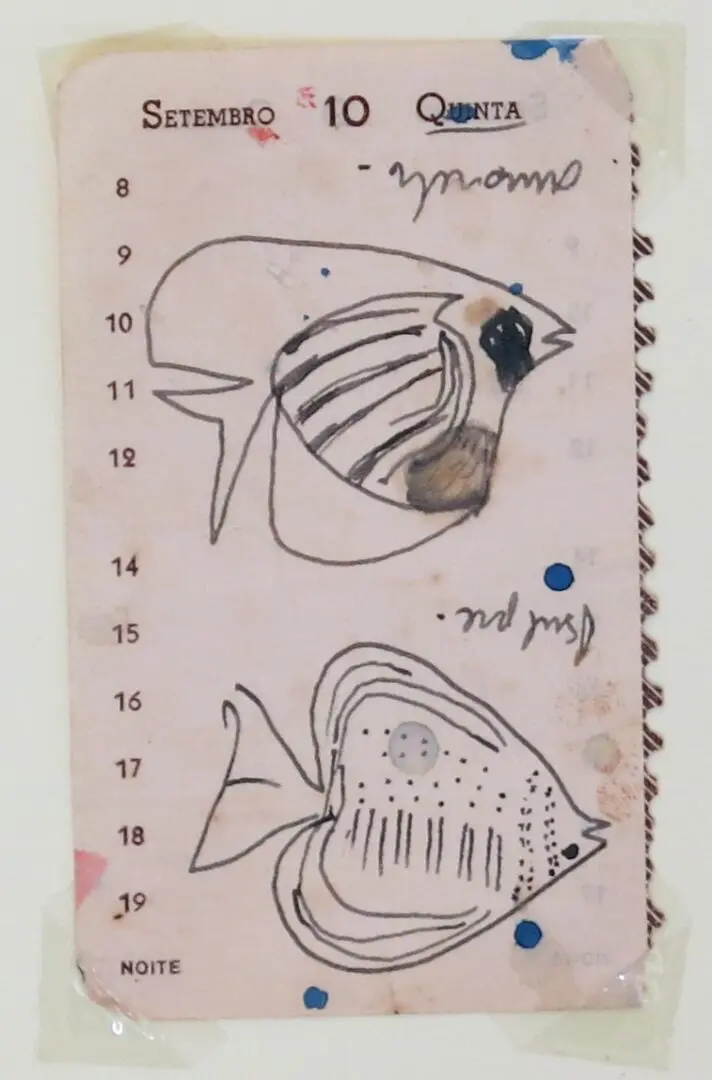 SETEMBRO 10 QUINTA
8
9
10
11
12
14
15
16
17
18
19
NOITE